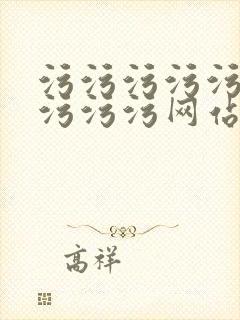 污污污污污
污污污网站
高祥